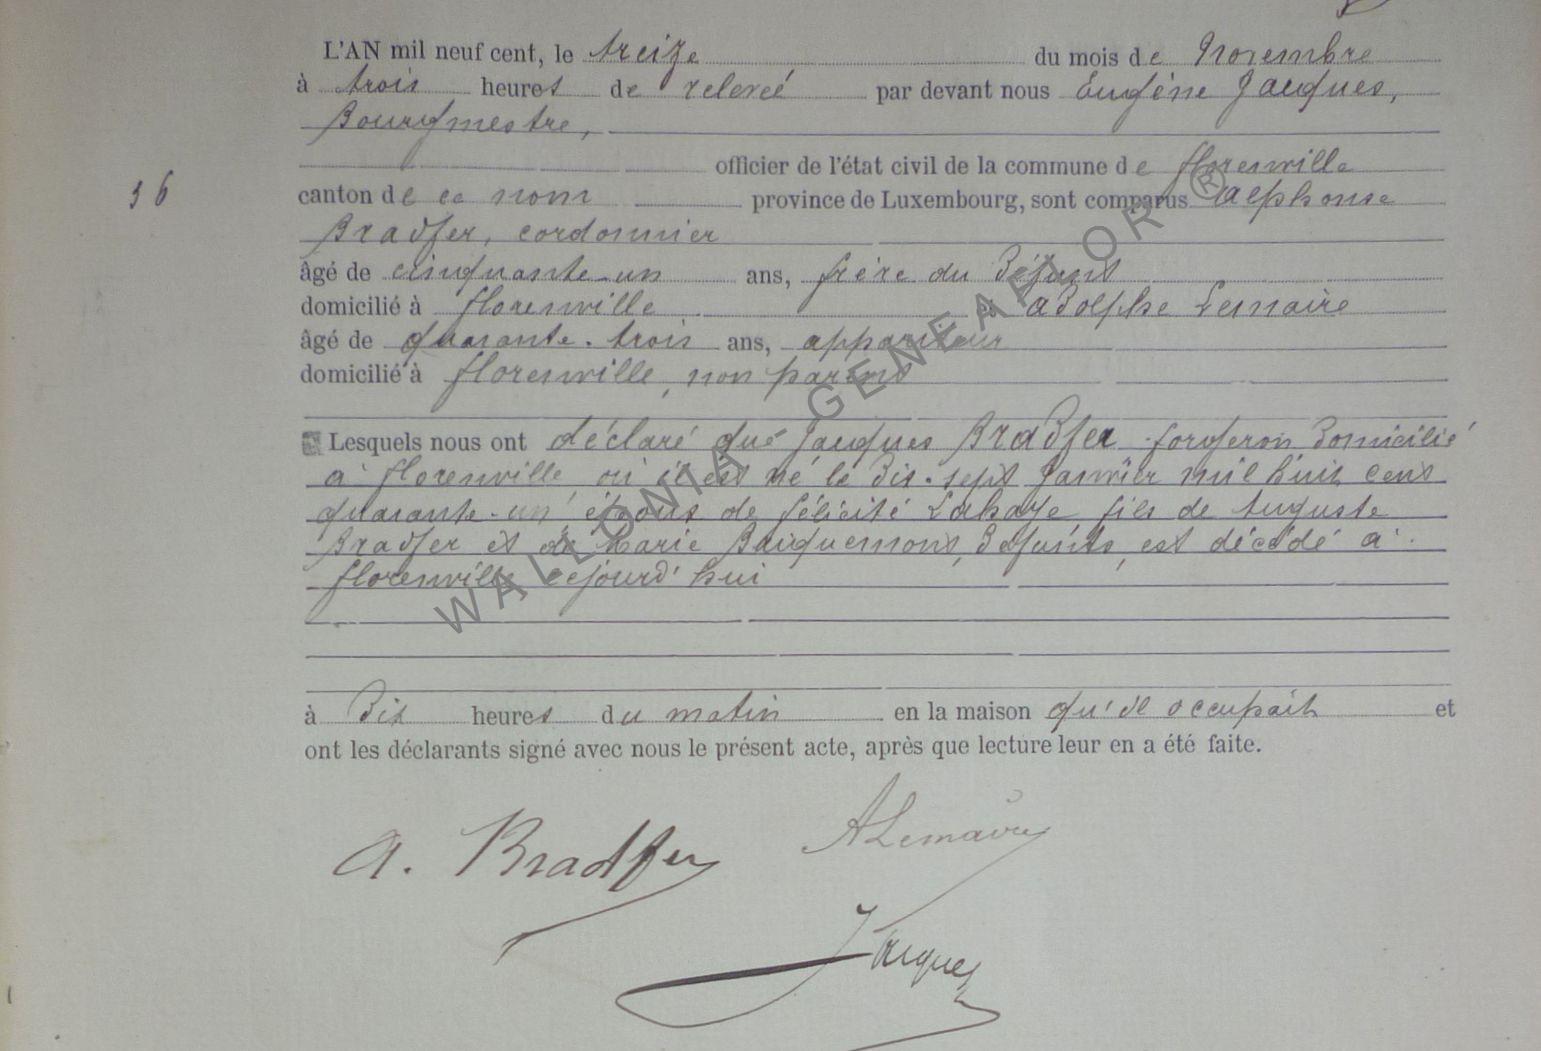 L'AN mil neuf cent, le treize du mois de Novembre
à trois heures de relevé par devant nous Eugène Jacques,
Bourgmestre,
officier de l'état civil de la commune de florenville
36 canton de ce nom province de Luxembourg, sont comparus Alphonse
Bradfer, cordonnier
âgé de cinquante-un ans, frère du Défunt
domicilié à florenville Adolphe Lemaire
âgé de quarante-trois ans, appariteur
domicilié à florenville, non parent
Lesquels nous ont déclaré que Jacques Bradfer forgeron, Domicilié
à florenville, où il est né le Dix-sept Janvier mil huit cent
quarante-un, époux de Félicité Lahaye fils de Auguste
Bradfer et de Marie Défunts, est décédé à
florenville cejourd'hui
à Dix heures du matin en la maison qu'il occupait et
ont les déclarants signé avec nous le présent acte, après que lecture leur en a été faite.
A. Bradfer ALemaire
Jacques
WALLONIA GENEALOR ®